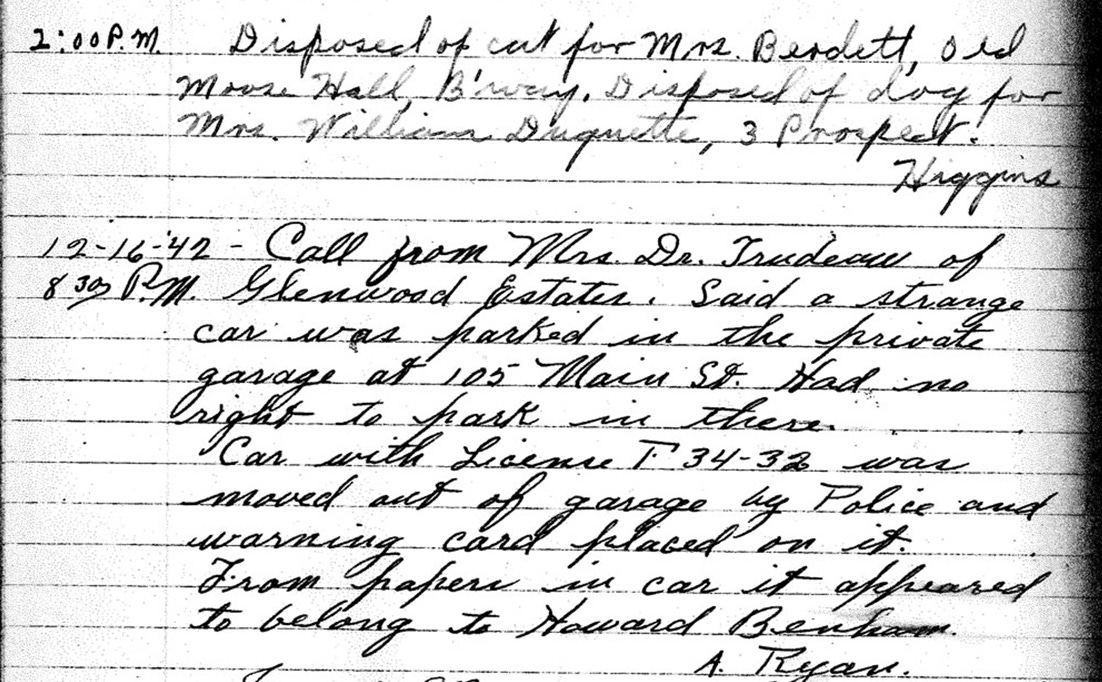 2:00 P.M. Disposed of cat for Mrs. Berdett, Old
Moose Hall, B'way. Disposed of dog for
Mrs. William Duquette, 3 Prospect.
Higgins
12-16-'42 - Call from Mrs. Dr. Trudeau of
8 30 P.M. Glenwood Estates. Said a strange
car was parked in the private
garage at 105 Main St. Had no
right to park in there.
Car with License T 34-32 was
moved out of garage by Police and
warning card placed on it.
From papers in car it appeared
to belong to Howard Benham.
A. Ryan.